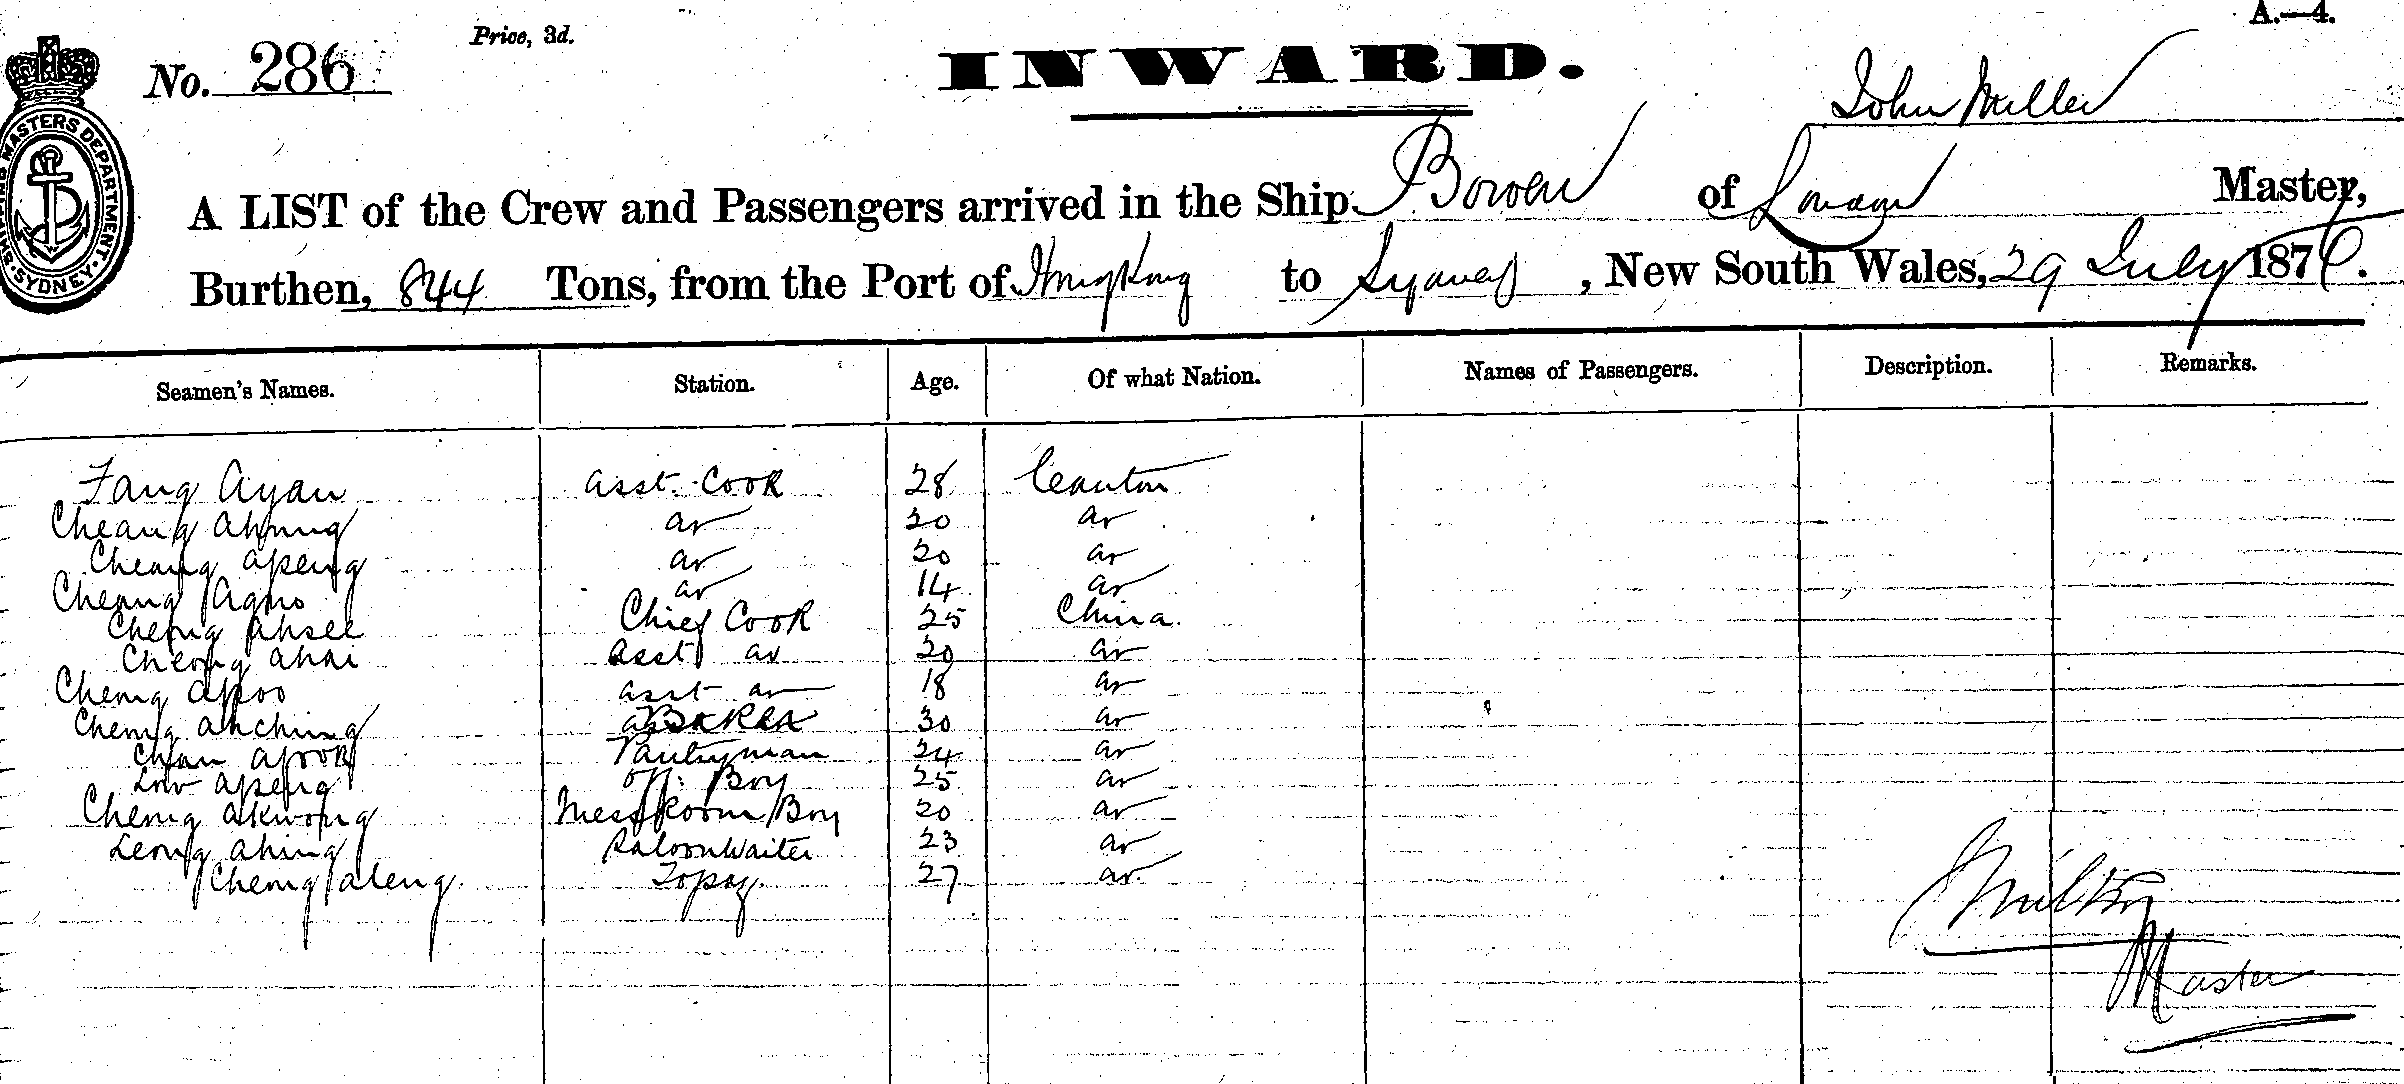 A.—4.
Price, 3d.
No. 286
INWARD.
John Miller
SHIPPING MASTERS DEPARTMENT. SYDNEY.
A LIST of the Crew and Passengers arrived in the Ship Bowen of London Master,
Burthen, 844 Tons, from the Port of Hong Kong to Sydney, New South Wales, 29 July 1876.
Seamen's Names. Station. Age. Of what Nation. Names of Passengers. Description. Remarks.
Fang Ayau asst. Cook 28 Canton
Cheang do 20 do
Cheang apeng do 20 do
Cheang do 14 do
Cheong Ahsee Chief Cook 25 China.
Cheong ahoi asst do 20 do
Cheong apoo asst do 18 do
Cheong ahching Baker 30 do
Chan apook Pantryman 24 do
Low apeng Off. Boy 25 do
Cheong akwong Messroom Boy 20 do
Leong ahing Saloon Waiter 23 do
Cheong aleng Topaz. 27 do.
Master